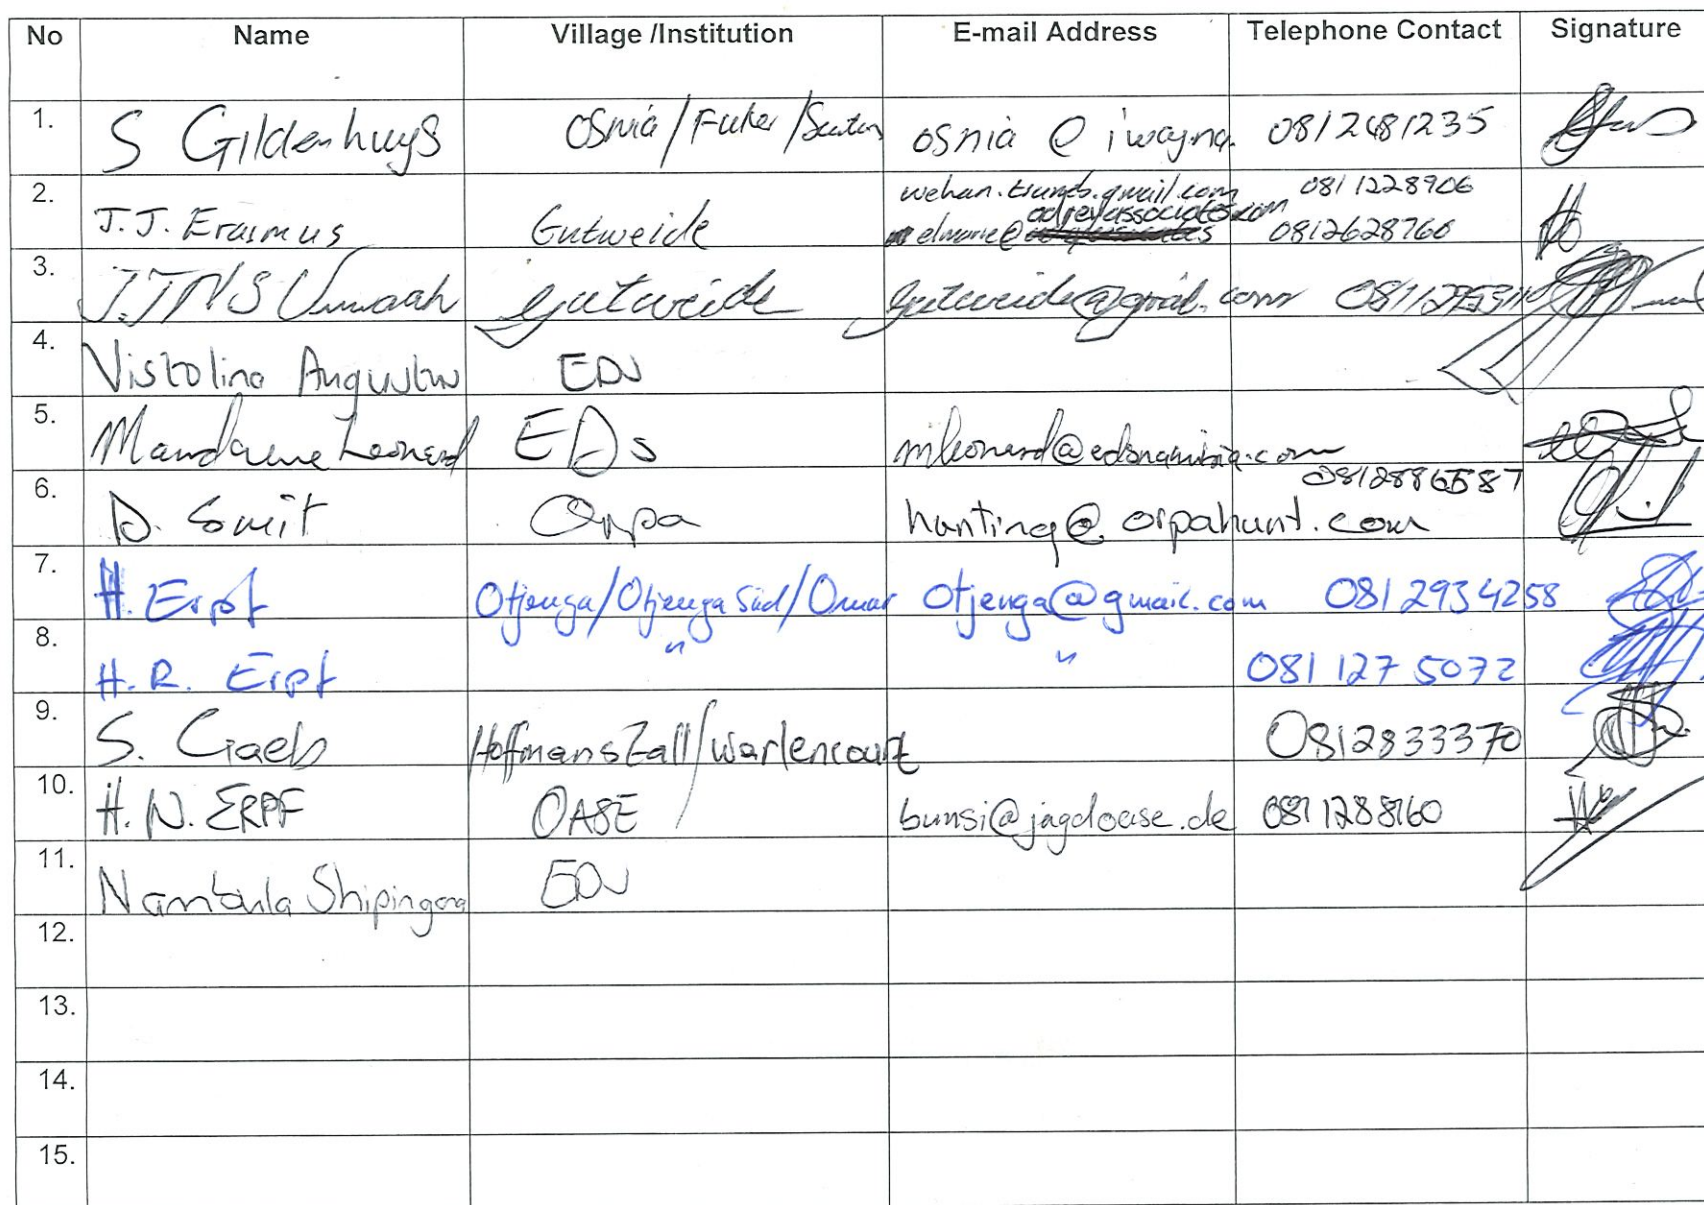 No Name Village /Institution E-mail Address Telephone Contact Signature
1. S Gildenhuys Osnia/Fuker/ osnia @ iway.na. 0812481235
wehan. .gmail.com 0811228906
2. J.J. Erasmus Gutweide adrevassociates.com
elmarie@ 0812628766
3. Gutweide gutweide@gmail.com
4. Vistolina EDS
5. Leonard EDs mleonard@edsnamibia.com
0812886587
6. D. Smit Orpa hunting@orpahunt.com
7. H. Erpf Otjenga/Otjenga Süd/ Otjenga@gmail.com 081 2934258
8. H.R. Erpf " " 081 127 5072
9. S. Gaeb Hoffmanstall/Warlencourt 0812833370
10. H.N. ERPF OASE bunsi@jagdoase.de 0811288160
11. Nambula EDS
12.
13.
14.
15.